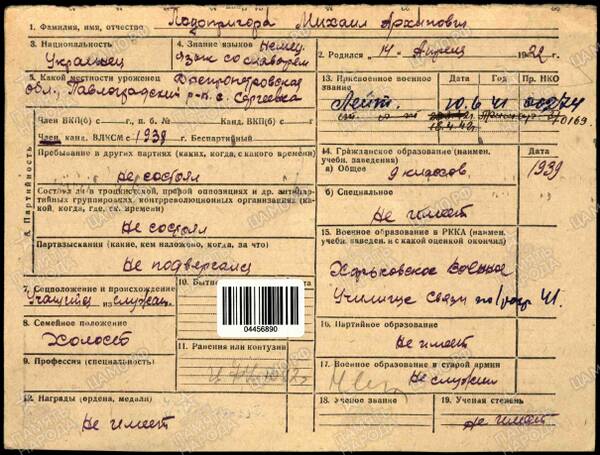 1. Фамилия, имя, отчество Подопригора Михаил Архипович
3. Национальность
Украинец
4. Знание языков Немец.
язык со словарём
2. Родился „14" Апреля 1922 г.
5. Какой местности уроженец Днепропетровская
обл., Павлоградский р-н. с. Сергеевка
13. Присвоенное военное
звание
Дата
Год
Пр. НКО
Лейт.
10.6
41
Член ВКП(б) с г., п. б. № Канд. ВКП(б) с г.
Член, канд. ВЛКСМ с 1938 г. Беспартийный
6. Партийность
Пребывание в других партиях (каких, когда, с какого времени)
не состоял
Состоял ли в троцкистской, правой оппозициях и др. антипар-
тийных группировках, контрреволюционных организациях (ка-
кой, когда, где, ск. времени)
Не состоял
Партвзыскания (какие, кем наложено, когда, за что)
Не подвергался
14. Гражданское образование (наимен.
учебн. заведения)
а) Общее
9 классов.
Дата
1939
б) Специальное
Не имеет
15. Военное образование в РККА (наимен.
учебн. заведен. и с какой оценкой окончил)
Харьковское Военное
Училище Связи по 1 разр. 41.
7. Соцположение и происхождение
Учащийся из служащ.
10. Бытн
04456890
8. Семейное положение
Холост
11. Ранения или контузии
9. Профессия (специальность)
16. Партийное образование
Не имеет
17. Военное образование в старой армии
Не служил
12. Награды (ордена, медали)
Не имеет
18. Ученое звание
19. Ученая степень
Не имеет
ЦАМО.РФ
ПАМЯТЬ НАРОДА